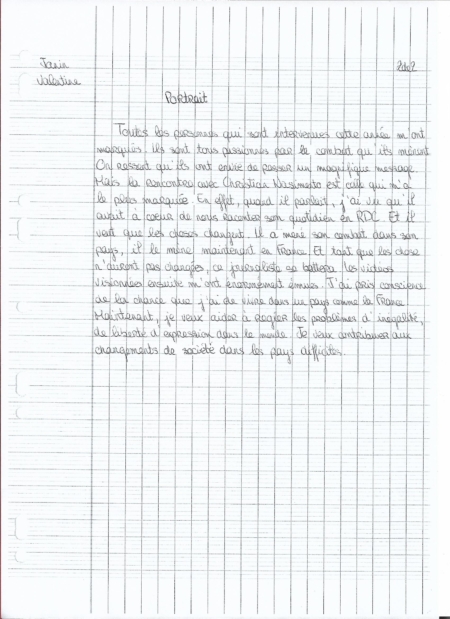 Janin
Valentine
2de2
Portrait
Toutes les personnes qui sont intervenues cette année m'ont
marqués. Ils sont tous passionnés par le combat qu'ils mènent.
On ressent qu'ils ont envie de passer un magnifique message.
Mais la rencontre avec Christian est celle qui m'a
le plus marquée. En effet, quand il parlait, j'ai vu qu'il
avait à coeur de nous raconter son quotidien en RDC. Et il
veut que les choses changent. Il a mené son combat dans son
pays, il le mène maintenant en France. Et tant que les chose
n'auront pas changées, ce journaliste se battera. Les videos
visionnées ensuite m'ont énormément émues. J'ai pris conscience
de la chance que j'ai de vivre dans un pays comme la France
Maintenant, je veux aider à régler les problèmes d'inégalité,
de liberté d'expression dans le monde. Je veux contribuer aux
changements de société dans les pays difficiles.